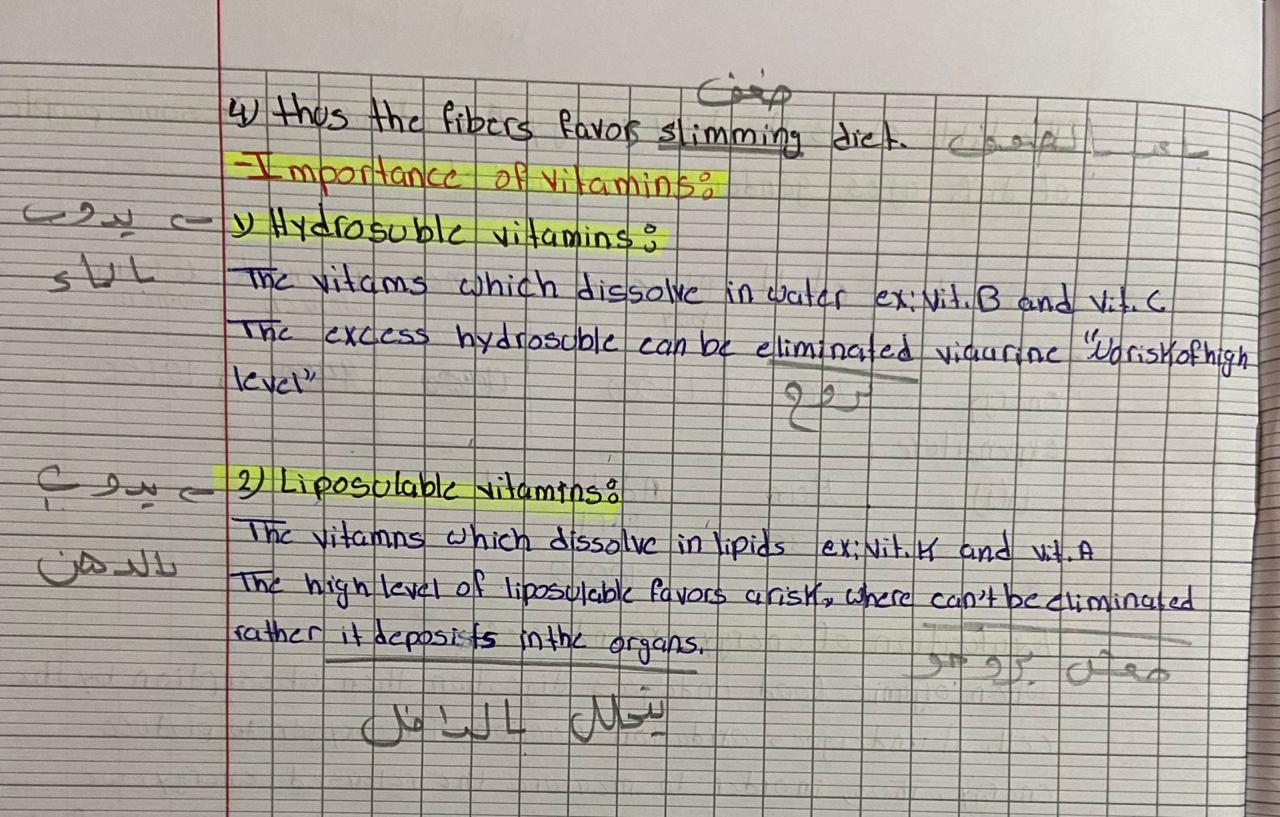 4) thus the fibers favors slimming diet.
-Importance of vitamins:
1) Hydrosuble vitamins:
← يدوب
بالماء
The vitams which dissolve in water ex: vit. B and vit. C
The excess hydrosuble can be eliminated via urine "No risk of high
level"
2) Liposulable vitamins:
← يدوب
بالدهن
The vitamns which dissolve in lipids ex: vit. K and vit. A
The high level of liposulable favors a risk, where can't be eliminated
rather it deposists in the organs.